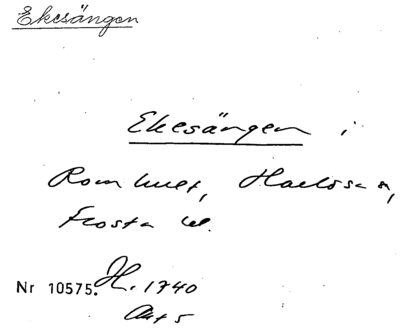 Ekesängen
Ekesängen i
Romhult, Harlösa s,
Frosta hd.
Nr 10575. H. 1740
Akt 5